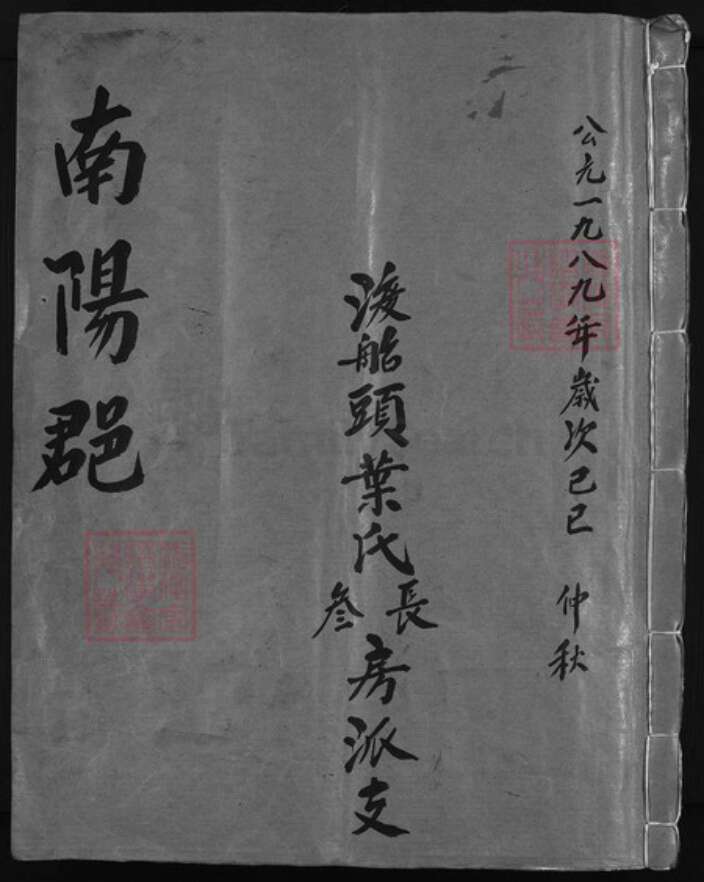 公元一九八九年歲次己巳 仲秋
渡船頭葉氏長叁房派支
南陽郡